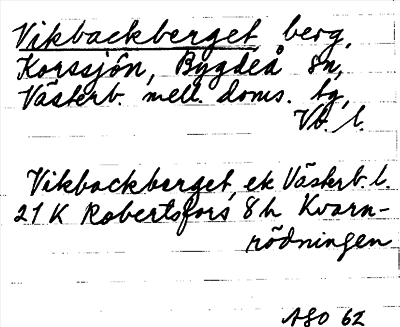 Vikbackberget, berg,
Korssjön, Bygdeå sn,
Västerb. mell. doms. tg,
Vb. l.
Vikbackberget, ek Västerb. l.
21 K Robertsfors 8 h Kvarn-
rödningen
ASO 62